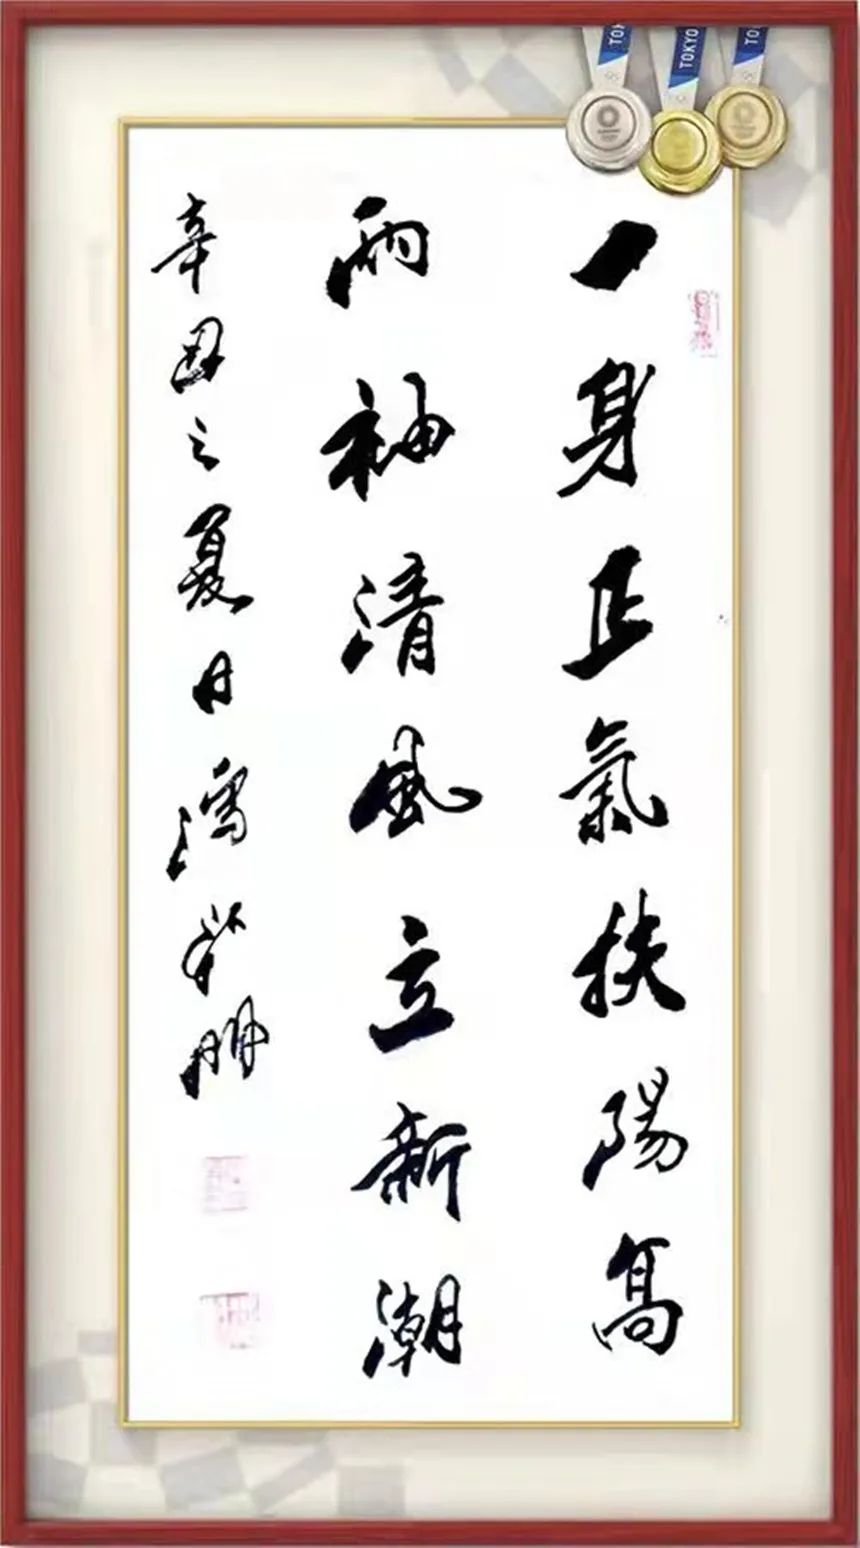 TO
TOKYO
TO
一身正氣扶陽高
兩袖清風立新潮
辛丑之夏日